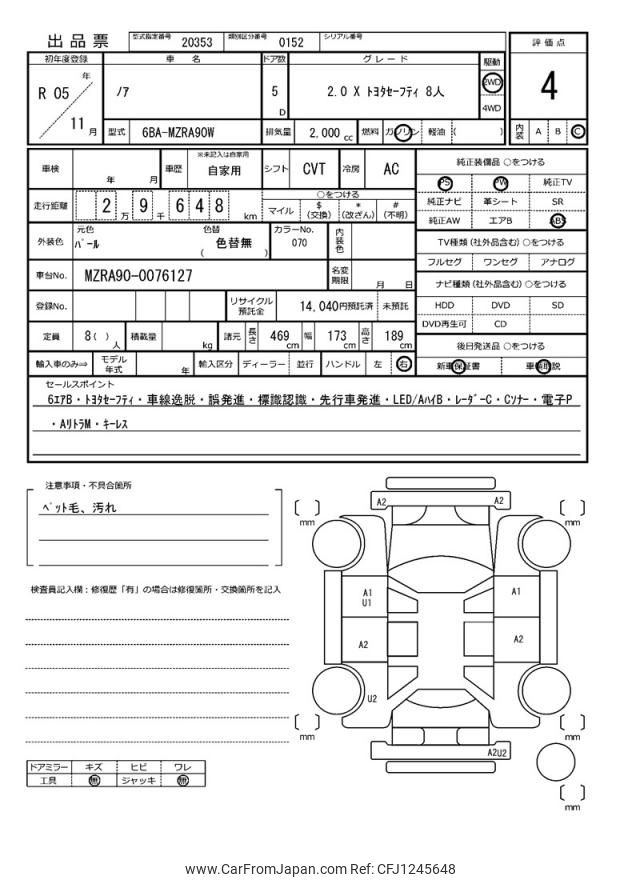 出品票 型式指定番号 20353 類別区分番号 0152 シリアル番号
評価点
4
内装 A B C
初年度登録 車名 ドア数 グレード 駆動
R 05 年 11 月
ノア 5 D 2.0 X トヨタセーフティ 8人 2WD 4WD
型式 6BA-MZRA90W 排気量 2,000 cc 燃料 ガソリン 軽油 ( )
車検 年 月 車歴 ※未記入は自家用 自家用 シフト CVT 冷房 AC
走行距離 2 万 9 千 6 4 8 km
○をつける
マイル $(交換) *(改ざん) #(不明)
外装色 元色 パール 色替 色替無 ( ) カラーNo. 070 内装色
車台No. MZRA90-0076127 名変期限 月 日
登録No. リサイクル預託金 14,040円預託済 未預託
定員 8( )人 積載量 kg 諸元 長さ 469 cm 幅 173 cm 高さ 189 cm
輸入車のみ⇒ モデル年式 年 輸入区分 ディーラー 並行 ハンドル 左 右
純正装備品 ○をつける
PS PW 純正TV
純正ナビ 革シート SR
純正AW エアB ABS
TV種類(社外品含む)○をつける
フルセグ ワンセグ アナログ
ナビ種類(社外品含む)○をつける
HDD DVD SD
DVD再生可 CD
後日発送品 ○をつける
新車保証書 車輌取説
セールスポイント
6エアB・トヨタセーフティ・車線逸脱・誤発進・標識認識・先行車発進・LED/AハイB・レーダーC・Cソナー・電子P
・AリトラM・キーレス
注意事項・不具合箇所
ペット毛、汚れ
検査員記入欄:修復歴「有」の場合は修復箇所・交換箇所を記入
ドアミラー キズ ヒビ ワレ
工具 無 ジャッキ 無
A2 A2
mm mm
A1
U1
A1
A2 A2
U2
mm mm
A2U2
mm
www.CarFromJapan.com Ref: CFJ1245648